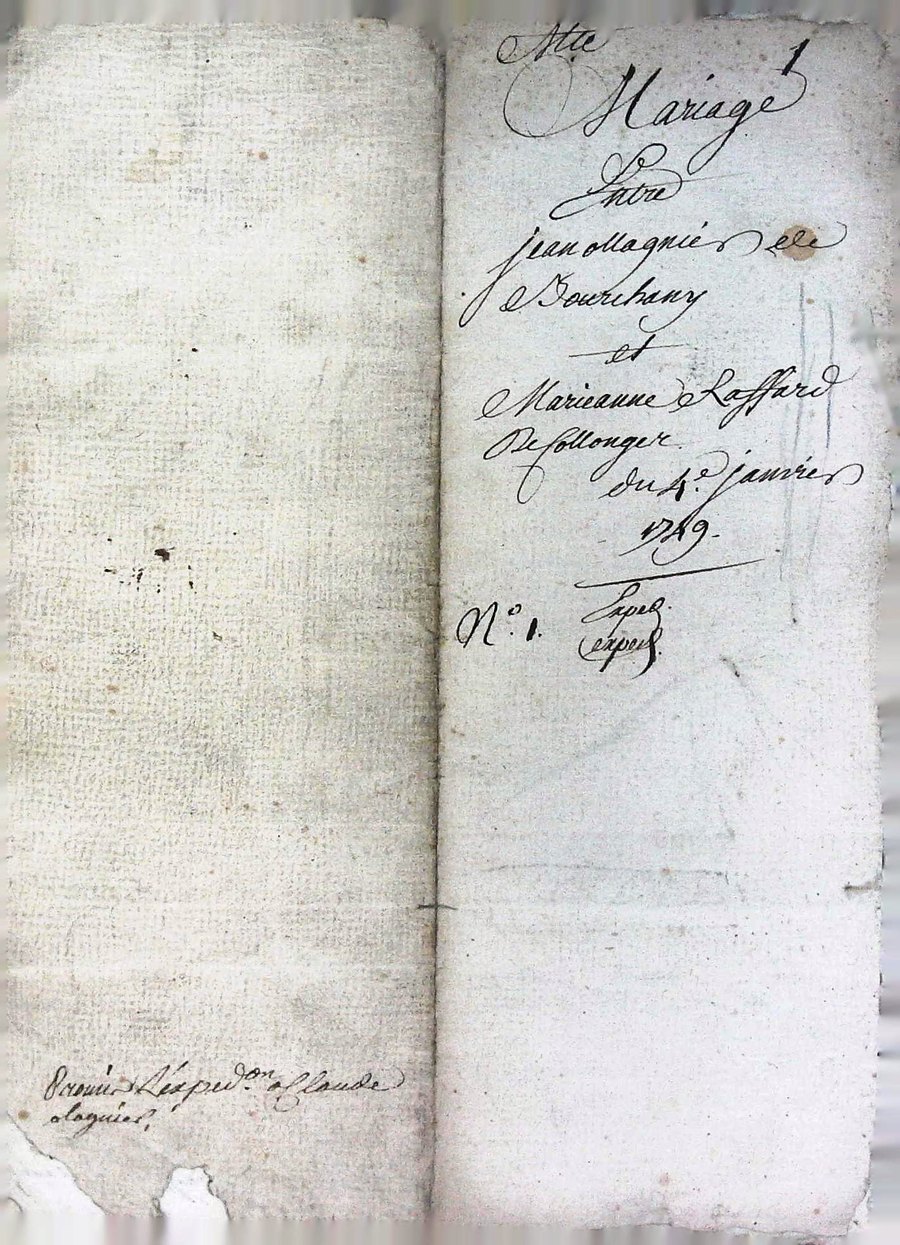 1
Mariage
Entre
jean Magnier de
Bourchany
et
Marieanne Raffard
De Collonger
du 4e. janvier
1749.
Exped.
N°. 1.
exped.
L'exped.on a Claude
Magnier.